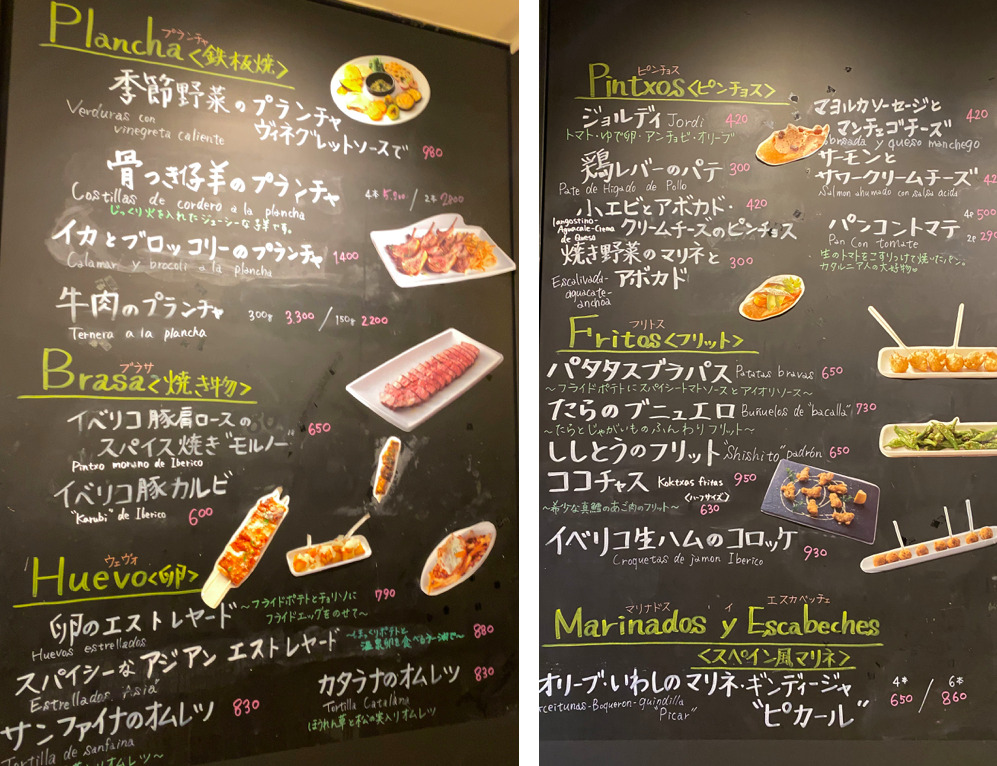 プランチャ
Plancha<鉄板焼>
季節野菜のプランチャ
ヴィネグレットソースで 980
Verduras con
vinegreta caliente
骨つき仔羊のプランチャ
Costillas de cordero a la plancha
じっくり火を入れたジューシーな子羊です。
イカとブロッコリーのプランチャ 1400
Calamar y brocoli a la plancha
牛肉のプランチャ 300g 3,300 / 150g 2200
Ternera a la plancha
ブラサ
Brasa<焼き物>
イベリコ豚肩ロースの
スパイス焼き"モルノー" 650
Pintxo moruno de Iberico
イベリコ豚カルビ
"Karubi" de Iberico 600
ウェヴォ
Huevo<卵>
卵のエストレヤード ~フライドポテトとチョリソに 790
フライドエッグをのせて~
Huevos estrellados
スパイシーなアジアンエストレヤード 880
Estrellados "Asia"
サンファイナのオムレツ 830
Tortilla de sanfaina
カタラナのオムレツ 830
Tortilla Catalana
ほうれん草と松の実入りオムレツ
ピンチョス
Pintxos<ピンチョス>
ジョルディ Jordi 420
トマト・ゆで卵・アンチョビ・オリーブ
鶏レバーのパテ 300
Pate de Higado de Pollo
小エビとアボカド・ 420
クリームチーズのピンチョス
langostino-
Aguacate-Crema
de Queso
焼き野菜のマリネと 300
アボカド
Escalivada-
aguacate-
anchoa
マヨルカソーセージと
マンチェゴチーズ 420
brasada y queso manchego
サーモンと
サワークリームチーズ
Salmon ahumado con salsa acida
パンコントマテ 4p 500
Pan con tomate
生のトマトをこすりつけて焼いたパン。
カタルニア人の大好物♡
フリトス
Fritos<フリット>
パタタスブラバス Patatas bravas 650
~フライドポテトにスパイシートマトソースとアイオリソース~
たらのブニュエロ Buñuelos de "bacalla" 730
~たらとじゃがいものふんわりフリット~
ししとうのフリット "Shishito" padrón 650
ココチャス Koktxas fritas 950
<ハーフサイズ>
~希少な真鱈のあご肉のフリット~ 630
イベリコ生ハムのコロッケ 930
Croquetas de jamon Iberico
マリナドス イ エスカベッチェ
Marinados y Escabeches
<スペイン風マリネ>
オリーブ・いわしのマリネ・ギンディージャ 4本 650 / 6本 860
ceitunas-Boqueron-guindilla
"Picar" "ピカール"